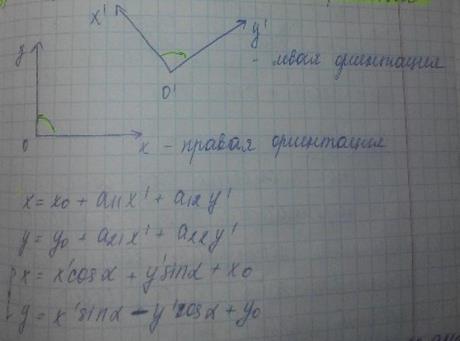 x'
y'
- левая ориентация
y
O'
O
x - правая ориентация
x = x₀ + a₁₁x' + a₁₂y'
y = y₀ + a₂₁x' + a₂₂y'
{ x = x'cosα + y'sinα + x₀
y = x'sinα - y'cosα + y₀